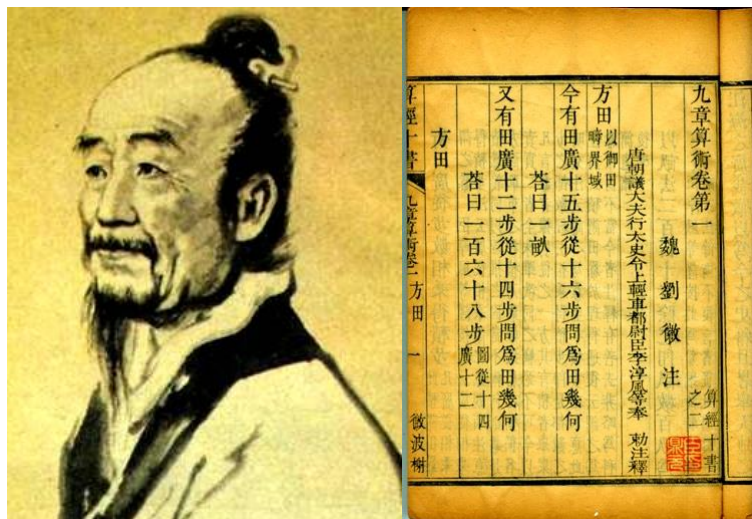 九章算術卷第一
算經十書
之二
魏 劉 徽 注
唐朝議大夫行太史令上輕車都尉臣李淳風等奉 勅注釋
方田 以御田
疇界域
今有田廣十五步從十六步問爲田幾何
荅曰一畝
又有田廣十二步從十四步問爲田幾何
荅曰一百六十八步 圖從十四
廣十二
方田
算經十書 九章算術卷一 方田 一 微波榭